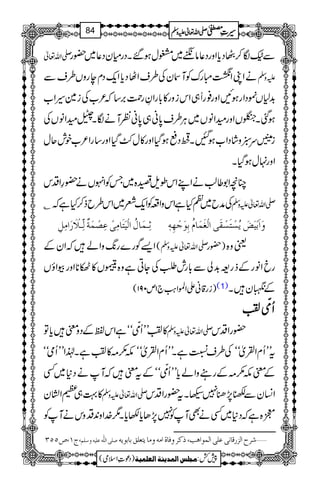 سیرتِ مصطفیٰ صلی اللہ تعالیٰ علیہ وسلم 84
سے ٹیک لگا کر بٹھا دیا اور دعا مانگنے میں مشغول ہو گئے۔ درمیان دعا میں حضور صلی اللہ تعالیٰ
علیہ وسلم نے اپنی انگشت مبارک کو آسمان کی طرف اٹھا دیا ایک دم چاروں طرف سے
بدلیاں نمودار ہوئیں اور فوراً ہی اس زور کا بارانِ رحمت برسا کہ عرب کی زمین سیراب
ہو گئی۔ جنگلوں اور میدانوں میں ہر طرف پانی ہی پانی نظر آنے لگا۔ چٹیل میدانوں کی
زمینیں سرسبز و شاداب ہو گئیں۔ قحط دفع ہو گیا اور کال کٹ گیا اور سارا عرب خوش حال
اور نہال ہو گیا۔
چنانچہ ابوطالب نے اپنے اس طویل قصیدہ میں جس کو انہوں نے حضور اقدس
صلی اللہ تعالیٰ علیہ وسلم کی مدح میں نظم کیا ہے اس واقعہ کو ایک شعر میں اس طرح ذکر کیا ہے کہ
وَاَبْیَضَ یُسْتَسْقَی الْغَمَامُ بِوَجْہِہٖ ثِمَالُ الْیَتَامٰی عِصْمَۃٌ لِّلْاَرَامِلِ
یعنی وہ (حضور صلی اللہ تعالیٰ علیہ وسلم) ایسے گورے رنگ والے ہیں کہ ان کے
رخ انور کے ذریعہ بدلی سے بارش طلب کی جاتی ہے وہ یتیموں کا ٹھکانا اور بیواؤں
کے نگہبان ہیں۔ (1) (زرقانی علی المواہب ج۱ ص۱۹۰)
اُمّی لقب
حضور اقدس صلی اللہ تعالیٰ علیہ وسلم کا لقب ’’اُمّی‘‘ ہے اس لفظ کے دو معنی ہیں یا تو
یہ ’’اُم القریٰ‘‘ کی طرف نسبت ہے۔ ’’اُم القریٰ‘‘ مکہ مکرمہ کا لقب ہے۔ لہٰذا ’’اُمّی‘‘
کے معنی مکہ مکرمہ کے رہنے والے یا ’’اُمّی‘‘ کے یہ معنی ہیں کہ آپ نے دنیا میں کسی
انسان سے لکھنا پڑھنا نہیں سیکھا۔ یہ حضور اقدس صلی اللہ تعالیٰ علیہ وسلم کا بہت ہی عظیم الشان
معجزہ ہے کہ دنیا میں کسی نے بھی آپ کو نہیں پڑھایا لکھایا۔ مگر خداوند قدوس نے آپ کو
شرح الزرقانی علی المواھب، ذکر وفاۃ امہ وما یتعلق بابویہ صلی اللہ علیہ وسلم، ج۱، ص۳۵۵
پیش کش: مجلس المدینۃ العلمیۃ (دعوتِ اسلامی)